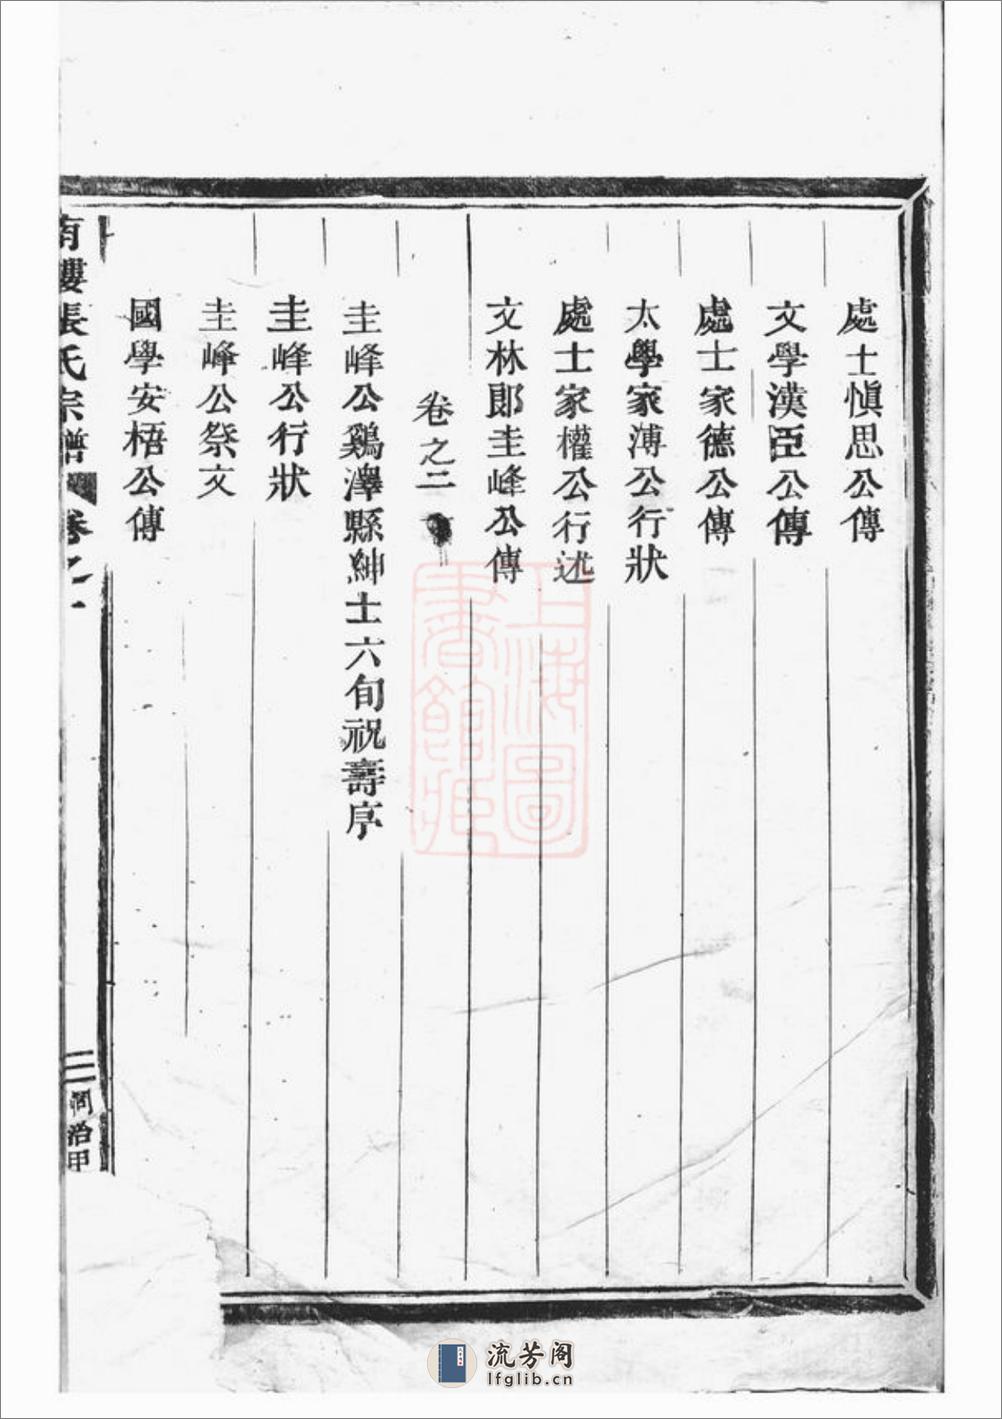 處士愼思公傳
文學漢臣公傳
處士家德公傳
太學家溥公行狀
處士家權公行述
文林郎圭峰公傳
卷之二
圭峰公鷄澤縣紳士六旬祝壽序
圭峰公行狀
圭峰公祭文
國學安梧公傳
南樓張氏宗譜
卷之一
三
同治甲
上海圖書館藏
流芳阁
lfglib.cn